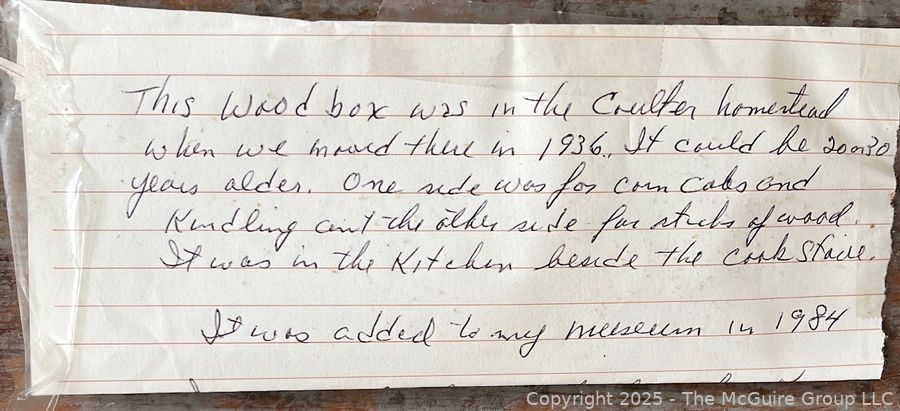 This Wood box was in the Coulter homestead
when we moved there in 1936. It could be 20 or 30
years older. One side was for corn cobs and
Kindling and the other side for sticks of wood.
It was in the Kitchen beside the cook Stove.
It was added to my museum in 1984
Copyright 2025 - The McGuire Group LLC